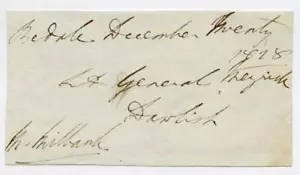 Bedale December Twenty
1828
Lt General
Dawlish
M. Milbank